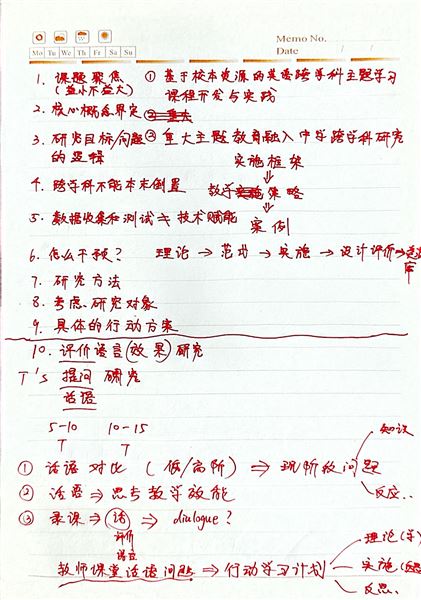 Memo No.
Mo Tu We Th Fr Sa Su
Date / /
1. 课题聚焦 ① 基于校本资源的英语跨学科主题学习
(益小不益大) 课程开发与实践
2. 核心概念界定 ②
3. 研究目标/问题 ③ 重大主题教育融入中学跨学科研究
的逻辑 实施框架
⇓
4. 跨学科不能本末倒置 教学策略
⇓
5. 数据收集和测试 技术赋能 案例
6. 怎么干预? 理论 → 范式 → 实施 → 设计评价 →
库
7. 研究方法
8. 考虑研究对象
9. 具体的行动方案
10. 评价语言(效果)研究
T's 提问 研究
话语
5-10 10-15
T T
知识
① 话语对比 (低/高阶) ⇒ 现阶段问题
② 话语 ⇒ 思考教学效能 反应..
③ 录课 ⇒ 话 ⇒ dialogue?
评价
理论(学)
教师课堂话语问题 ⇒ 行动学习计划 实施
反思.